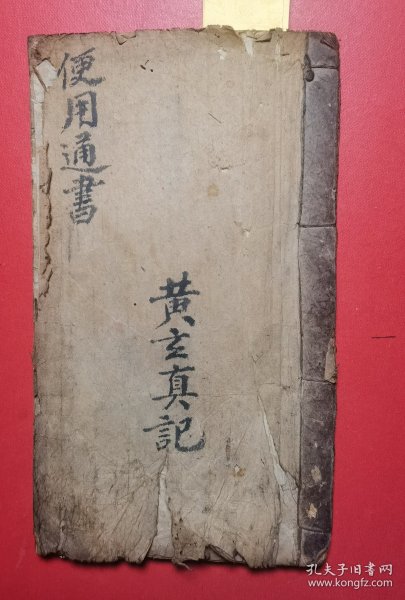 便用通書
黄玄真記
孔夫子旧书网
www.kongfz.com